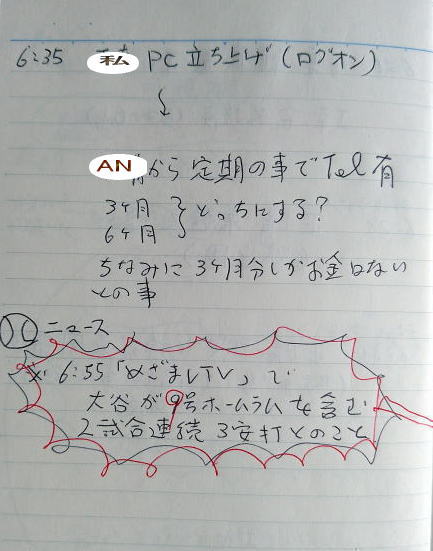 6:35 私 PC立ち上げ(ログオン)
↓
ANから定期の事でTel有
3ケ月
6ケ月 } どっちにする?
ちなみに3ケ月分しかお金はない
との事
ニュース
※6:55「めざましTV」で
大谷が9号ホームラムを含む
2試合連続3安打とのこと